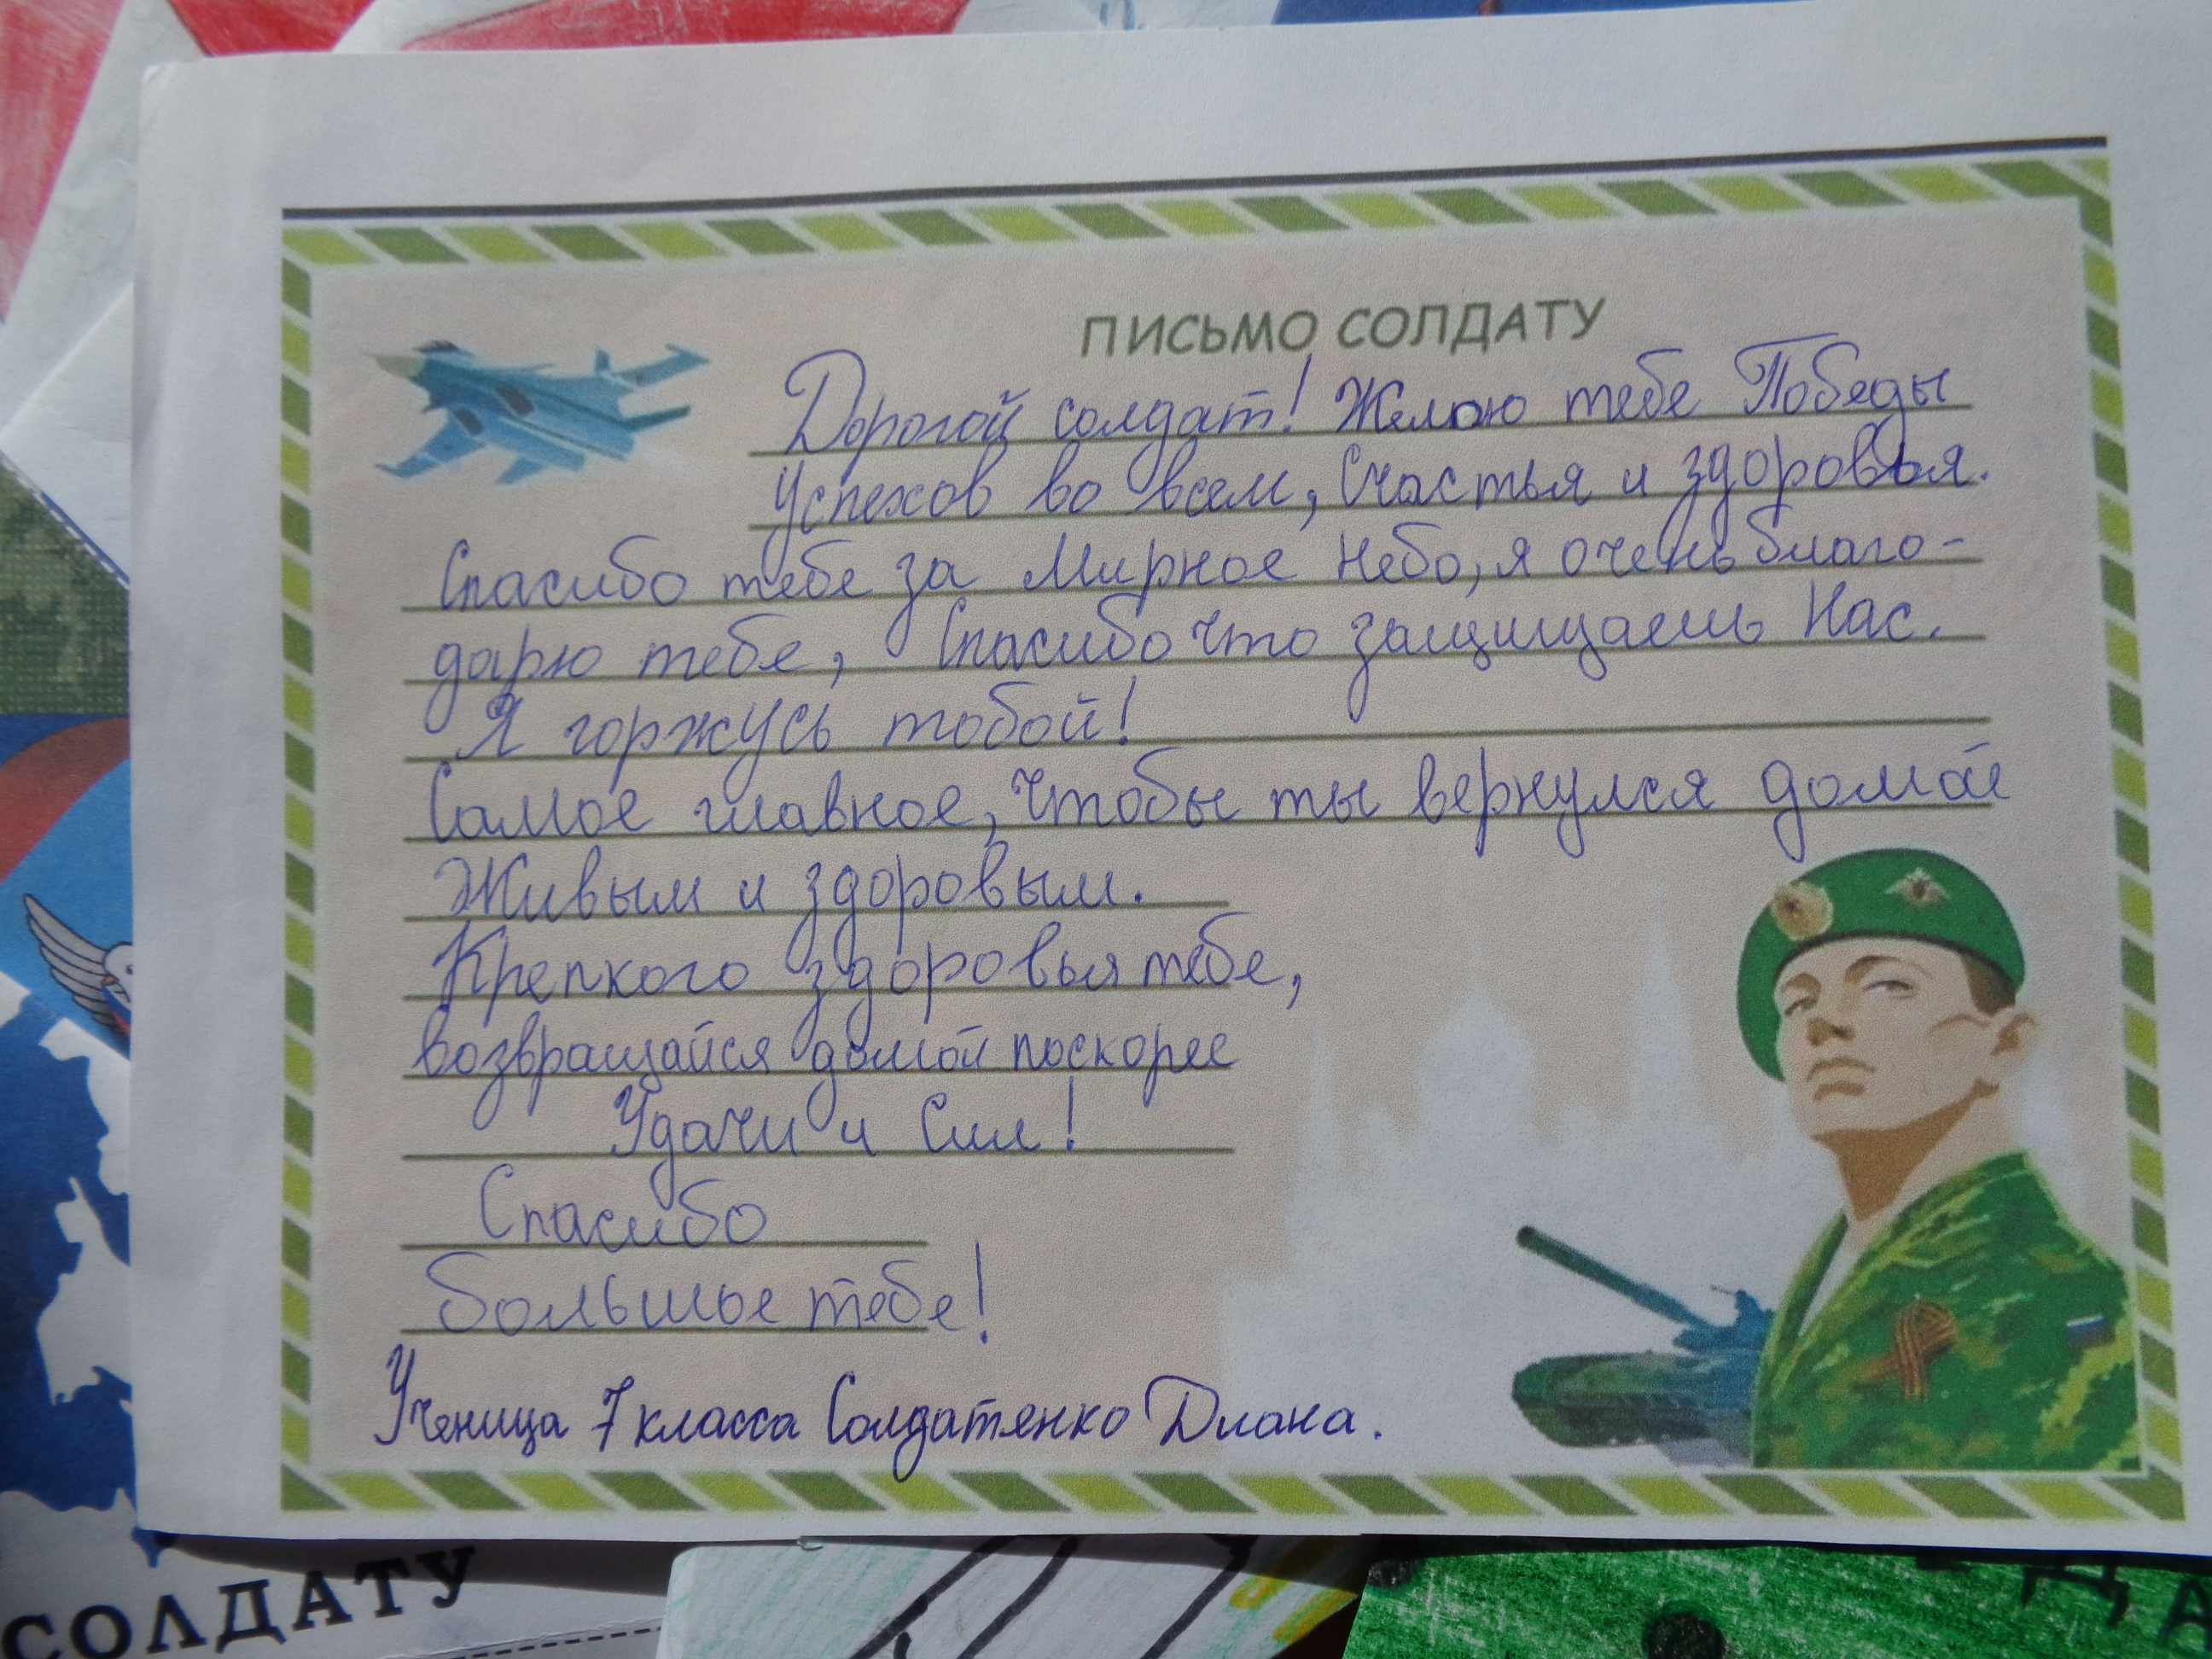 ПИСЬМО СОЛДАТУ
Дорогой солдат! Желаю тебе Победы
Успехов во всем, Счастья и здоровья.
Спасибо тебе за Мирное Небо, я очень благо-
дарю тебе, Спасибо что защищаешь Нас.
Я горжусь тобой!
Самое главное, чтобы ты вернулся домой
Живым и здоровым.
Крепкого здоровья тебе,
возвращайся домой поскорее
Удачи и Сил!
Спасибо
большое тебе!
Ученица 7 класса Солдатенко Диана.
СОЛДАТУ